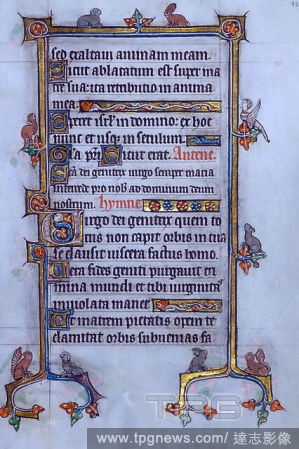 sed exaltavi animam meam.
Sicut ablactatum est super ma
tre sua: ita retributio in anima
mea.
Speret isrl' in domino: ex hoc
nunc et usqz in seculum.
Gla pri. Sicut erat. Antene.
Sca dei genitrix virgo semper maria
intercede pro nob ad dominum deum
nostrum. Hympne.
Virgo dei genitrix quem to
tus non capit orbis in tua
se clausit viscera factus homo.
Vera fides geniti purgavit cri
mina mundi et tibi virginitas
inviolata manet
Te matrem pietatis opem te
clamitat orbis subvenias fa
TPG
www.tpgnews.com/達志影像